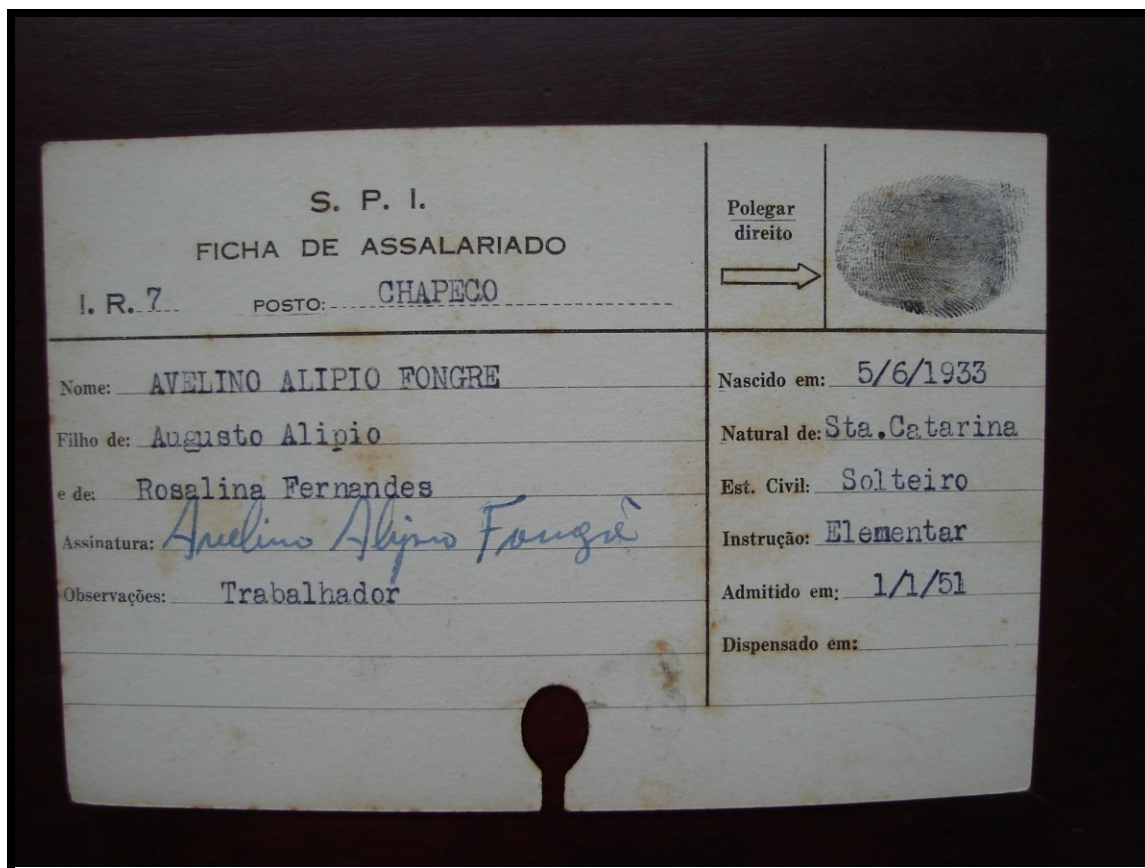 S. P. I.
FICHA DE ASSALARIADO
I. R. 7 POSTO: CHAPECO
Polegar
direito
Nome: AVELINO ALIPIO FONGRE
Filho de: Augusto Alipio
e de: Rosalina Fernandes
Assinatura: Avelino Alipio Fongrê
Observações: Trabalhador
Nascido em: 5/6/1933
Natural de: Sta.Catarina
Est. Civil: Solteiro
Instrução: Elementar
Admitido em: 1/1/51
Dispensado em: